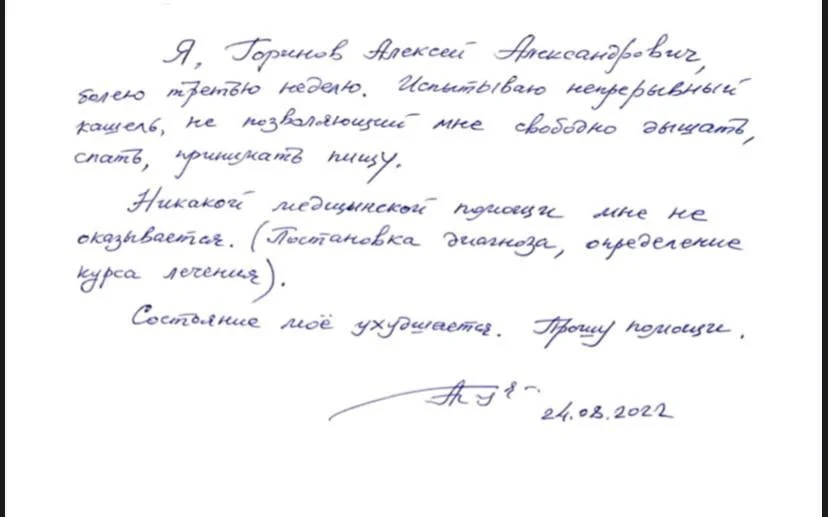 Я, Горинов Алексей Александрович,
болею третью неделю. Испытываю непрерывный
кашель, не позволяющий мне свободно дышать,
спать, принимать пищу.
Никакой медицинской помощи мне не
оказывается. (Постановка диагноза, определение
курса лечения).
Состояние моё ухудшается. Прошу помощи.
24.08.2022